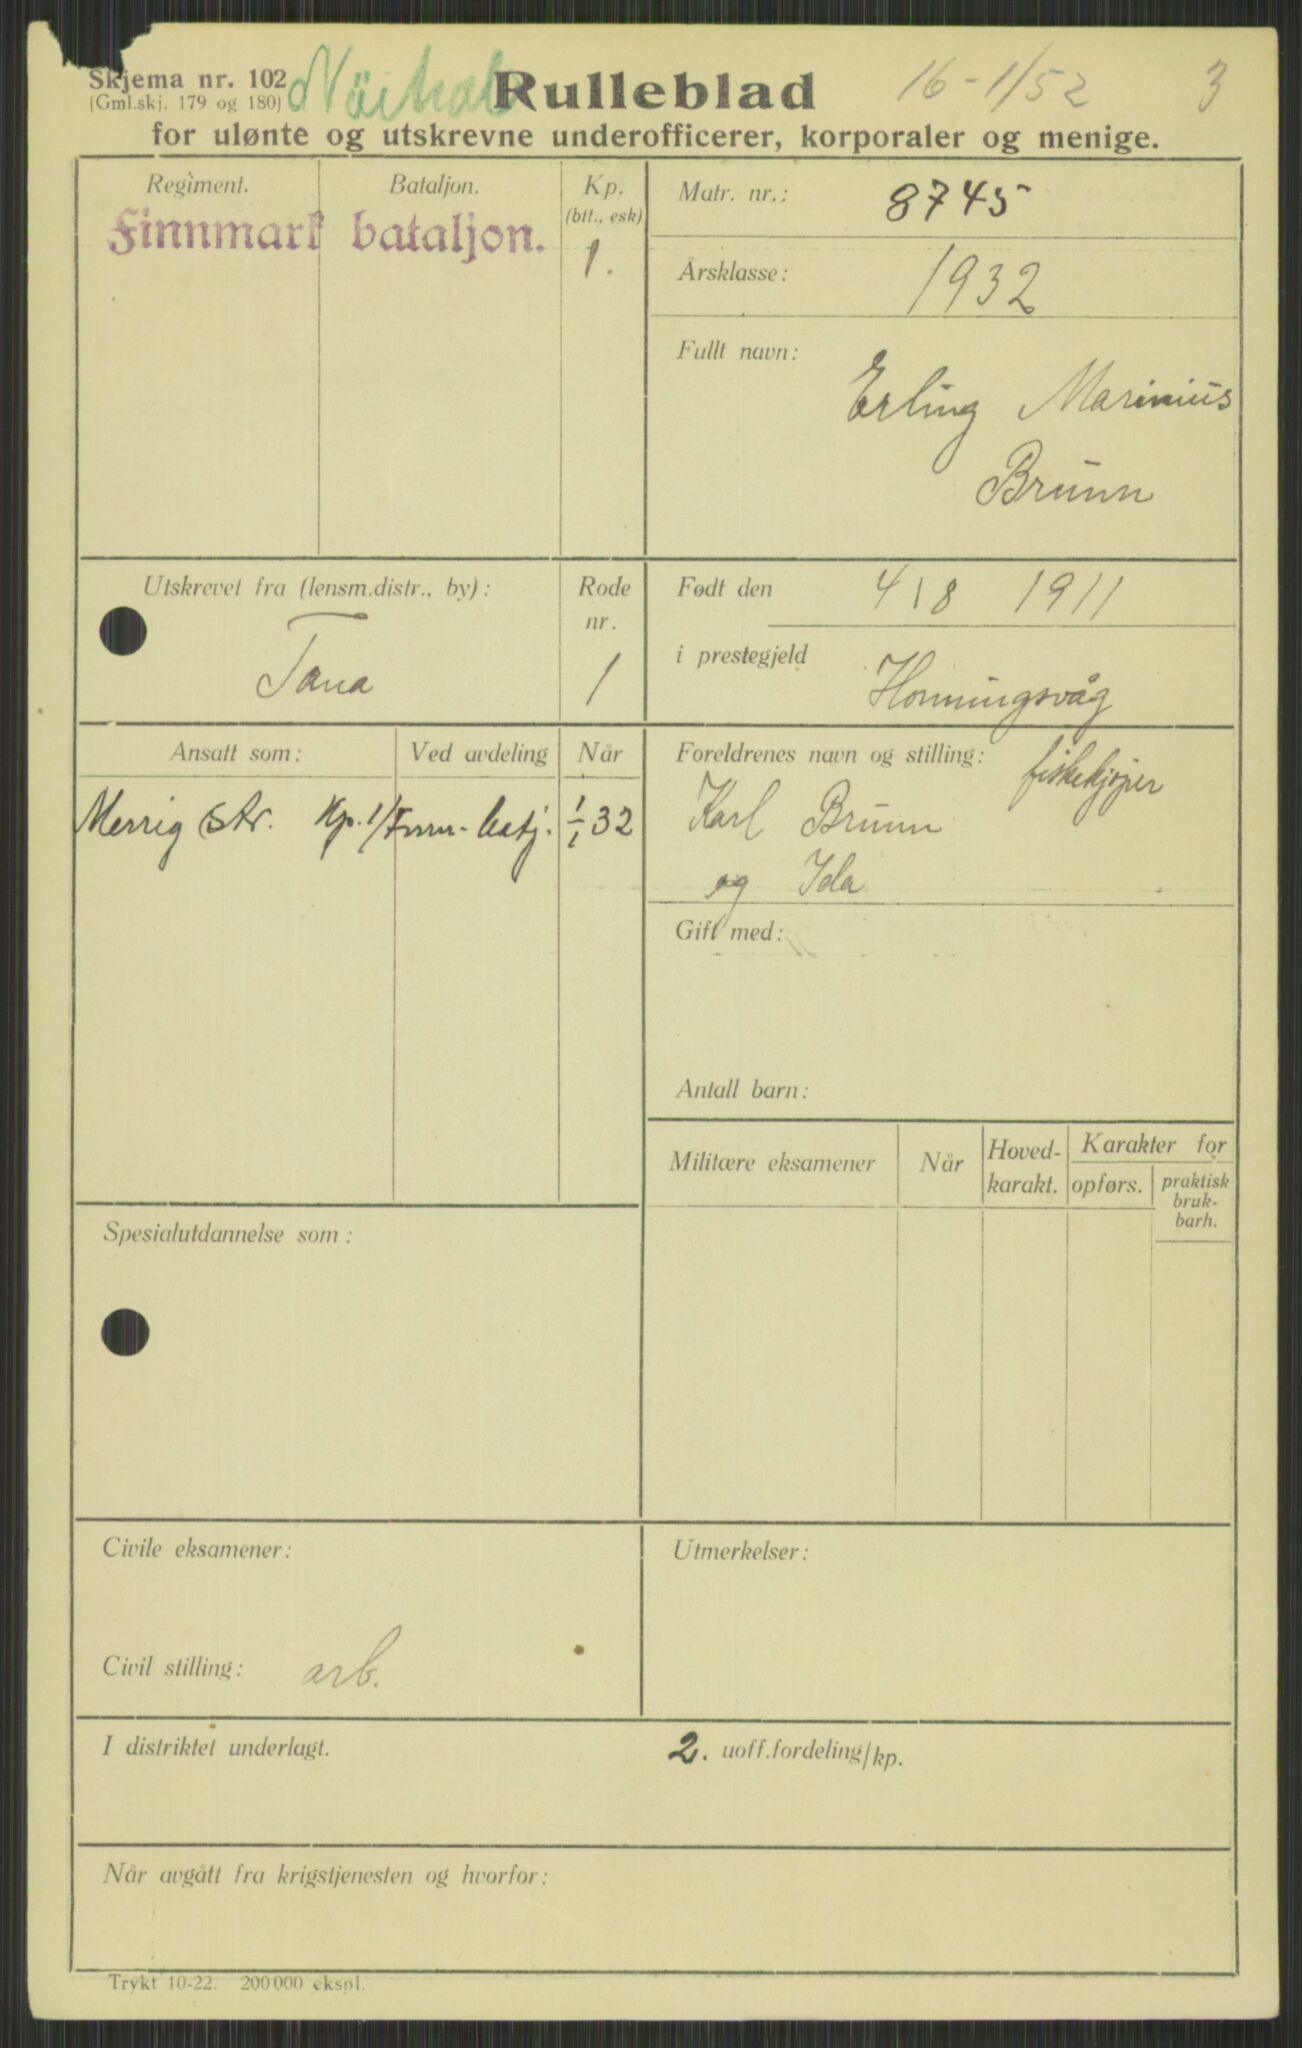 Skjema nr. 102
(Gml.skj. 179 og 180)
Rulleblad
16-1/52
3
for ulønte og utskrevne underofficerer, korporaler og menige.
Regiment.
Bataljon.
Kp.
(btt., esk)
Finnmark bataljon.
1.
Matr. nr.: 8745
Årsklasse: 1932
Fullt navn:
Erling Marinius
Brunn
Utskrevet fra (lensm.distr., by):
Tana
Rode
nr.
1
Født den 4/8 1911
i prestegjeld Honningsvåg
Ansatt som:
Ved avdeling
Når
Menig str. Kp. 1/Finnm. batj. 1/1 32
Foreldrenes navn og stilling: fiskekjøper
Karl Brunn
og Ida
Gift med:
Antall barn:
Militære eksamener
Når
Hoved-
karakt.
Karakter for
opførs.
praktisk
bruk-
barh.
Spesialutdannelse som:
Civile eksamener:
Civil stilling: arb.
Utmerkelser:
I distriktet underlagt.
2. uoff.fordeling/kp.
Når avgått fra krigstjenesten og hvorfor:
Trykt 10-22. 200000 ekspl.